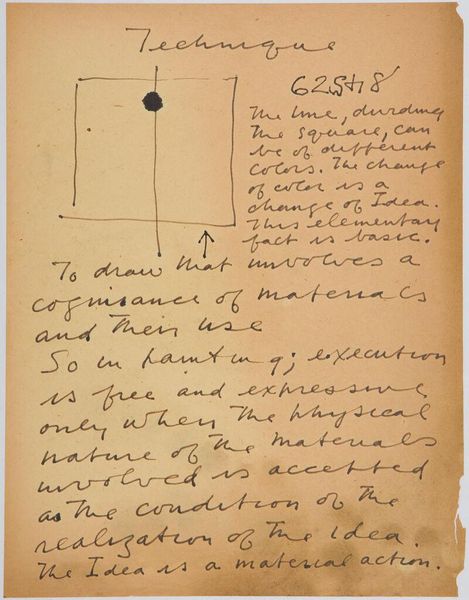 Technique
The line, dividing
The square, can
be of different
colors. The change
of color is a
change of Idea.
This elementary
fact is basic.
To draw that involves a
cognisance of materials
and Their use
So in painting; execution
is free and expressive
only when The physical
nature of The materials
involved is accepted
as The condition of The
realization of The idea.
The Idea is a material action.